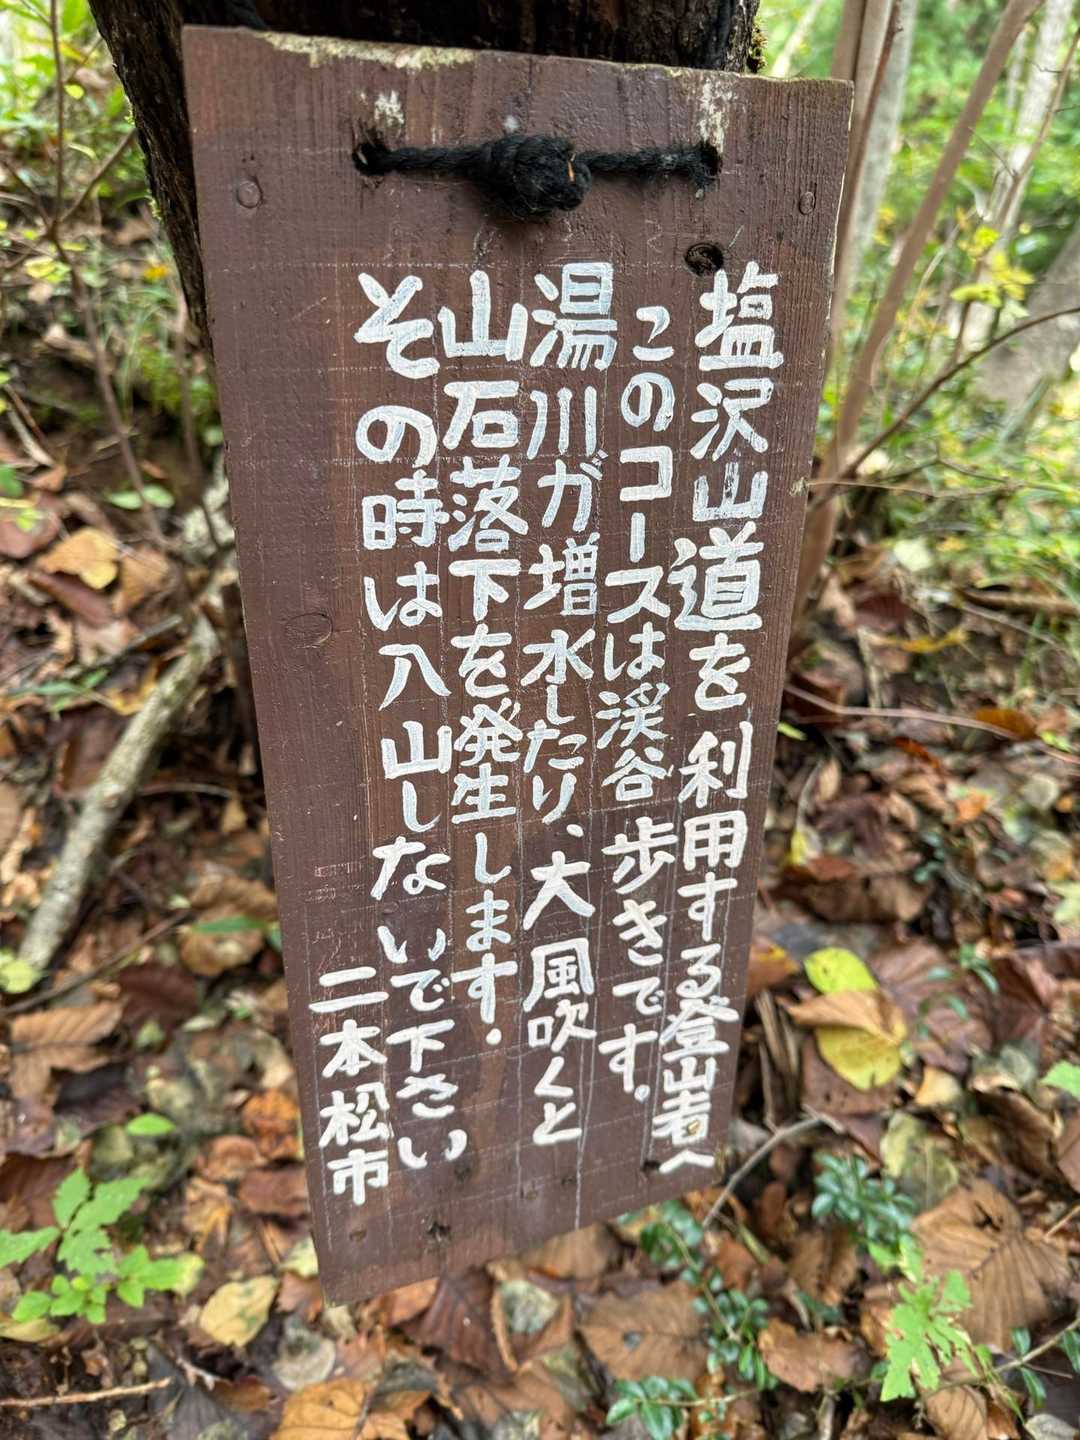 塩沢山道を利用する登山者へ
このコースは渓谷歩きです.
湯川が増水したり、大風吹くと
山石落下を発生します.
その時は入山しないで下さい
二本松市